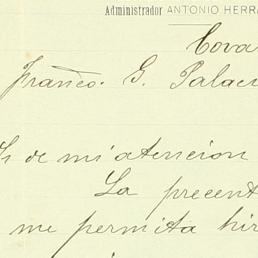 Administrador ANTONIO HERRA
Cova
Franco. G. Palac
Sr de mi atencion
La precent
me permita hir